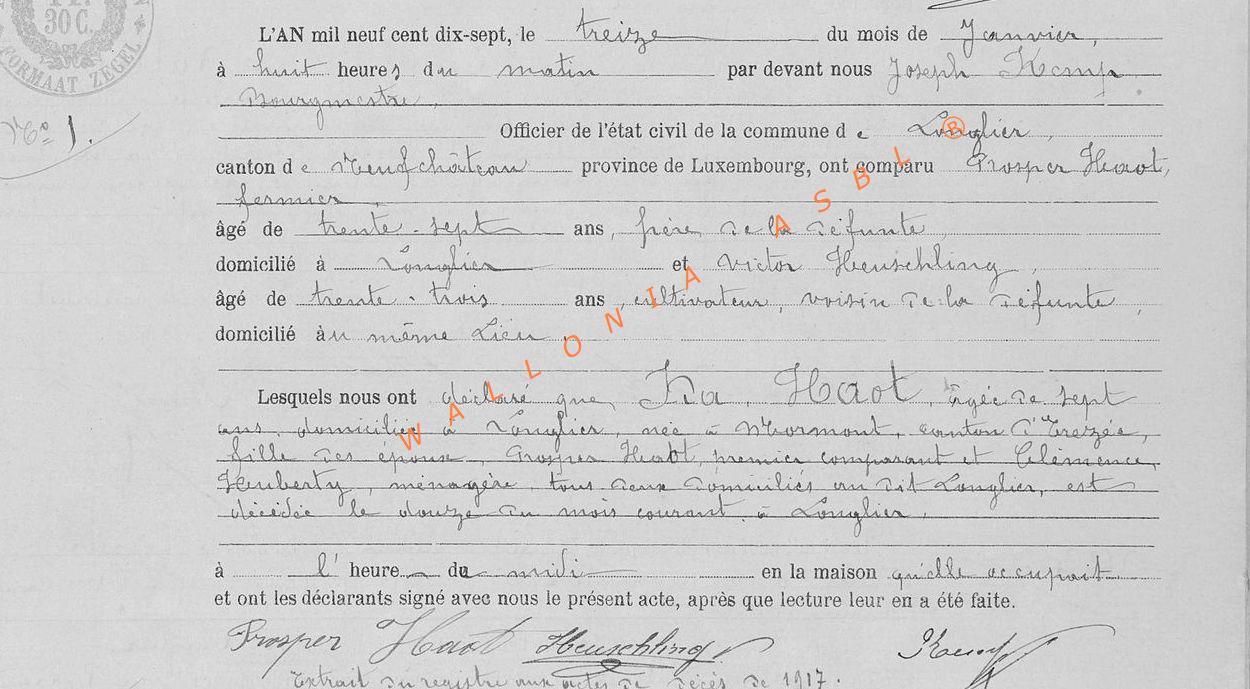 30 C.
FORMAAT ZEGEL
L'AN mil neuf cent dix-sept, le treize du mois de Janvier,
à huit heures du matin par devant nous Joseph Kemp
Bourgmestre,
N° 1.
Officier de l'état civil de la commune de Longlier,
canton de Neufchâteau province de Luxembourg, ont comparu Prosper Haot,
fermier,
âgé de trente-sept ans, père de la défunte
domicilié à Longlier et Victor Heuschling,
âgé de trente-trois ans, cultivateur, voisin de la défunte,
domicilié au même Lieu.
Lesquels nous ont déclaré que, Haot, âgée de sept
ans, domiciliée à Longlier, née à Mormont, canton d'Erezée,
fille des époux, Prosper Haot, premier comparant et Clémence,
Huberty, ménagère, tous deux domiciliés au dit Longlier, est
décédée le douze du mois courant, à Longlier,
à l' heure du midi en la maison qu'elle occupait
et ont les déclarants signé avec nous le présent acte, après que lecture leur en a été faite.
Prosper Haot Heuschling Kemp
Extrait du registre aux actes de décès de 1917.
WALLONIA ASBL ®